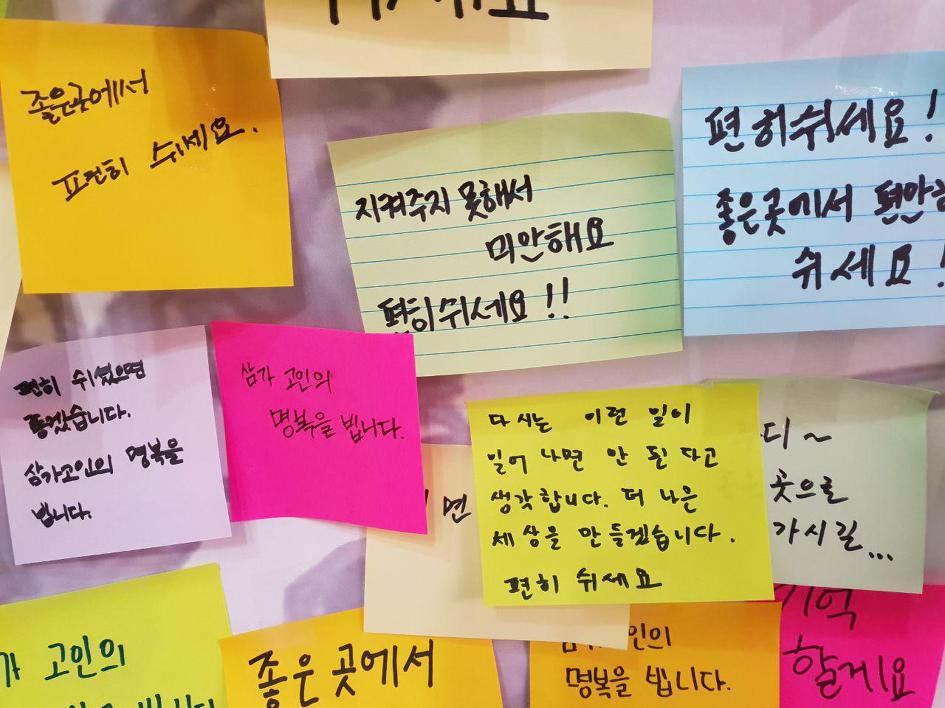 좋은곳에서
편히 쉬세요.
지켜주지 못해서
미안해요
편히쉬세요!!
편히쉬세요!
좋은곳에서
쉬세요!
편히 쉬셨으면
좋겠습니다.
삼가고인의 명복을
빕니다.
삼가 고인의
명복을 빕니다.
다시는 이런 일이
일어나면 안 된다고
생각합니다. 더 나은
세상을 만들겠습니다.
편히 쉬세요
곳으로
가시길...
고인의
좋은 곳에서
명복을 빕니다.
기억
할게요